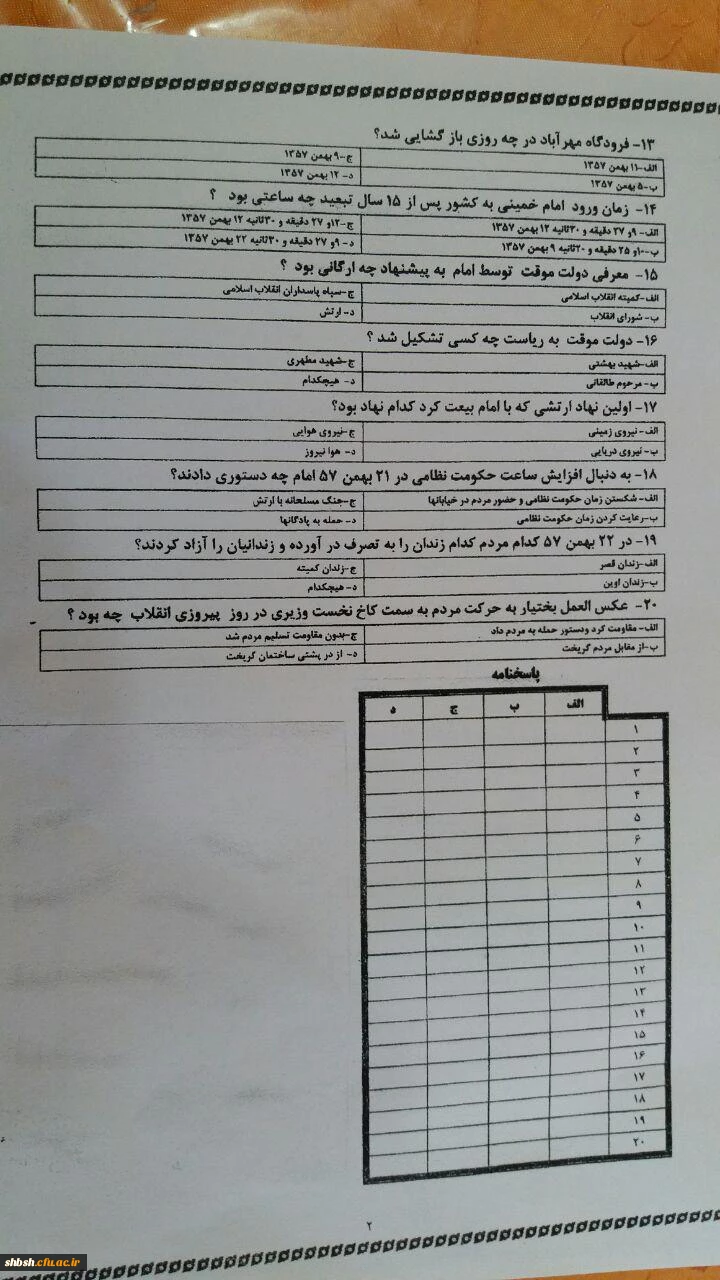 ۱۳- فرودگاه مهرآباد در چه روزی باز گشایی شد؟
الف-۱۱ بهمن ۱۳۵۷ ج-۹ بهمن ۱۳۵۷
ب-۵ بهمن ۱۳۵۷ د- ۱۲ بهمن ۱۳۵۷
۱۴- زمان ورود امام خمینی به کشور پس از ۱۵ سال تبعید چه ساعتی بود ؟
الف- ۹و ۲۷ دقیقه و ۳۰ثانیه ۱۲ بهمن ۱۳۵۷ ج-۱۲و ۲۷ دقیقه و ۳۰ثانیه ۱۲ بهمن ۱۳۵۷
ب-۱۰و ۲۵ دقیقه و ۲۰ثانیه ۹ بهمن ۱۳۵۷ د- ۹و ۲۷ دقیقه و ۳۰ثانیه ۲۲ بهمن ۱۳۵۷
۱۵- معرفی دولت موقت توسط امام به پیشنهاد چه ارگانی بود ؟
الف-کمیته انقلاب اسلامی ج-سپاه پاسداران انقلاب اسلامی
ب- شورای انقلاب د- ارتش
۱۶- دولت موقت به ریاست چه کسی تشکیل شد ؟
الف-شهید بهشتی ج-شهید مطهری
ب- مرحوم طالقانی د- هیچکدام
۱۷- اولین نهاد ارتشی که با امام بیعت کرد کدام نهاد بود؟
الف- نیروی زمینی ج-نیروی هوایی
ب- نیروی دریایی د- هوا نیروز
۱۸- به دنبال افزایش ساعت حکومت نظامی در ۲۱ بهمن ۵۷ امام چه دستوری دادند؟
الف- شکستن زمان حکومت نظامی و حضور مردم در خیابانها ج-جنگ مسلحانه با ارتش
ب-رعایت کردن زمان حکومت نظامی د- حمله به پادگانها
۱۹- در ۲۲ بهمن ۵۷ کدام مردم کدام زندان را به تصرف در آورده و زندانیان را آزاد کردند؟
الف-زندان قصر ج-زندان کمیته
ب-زندان اوین د-هیچکدام
۲۰- عکس العمل بختیار به حرکت مردم به سمت کاخ نخست وزیری در روز پیروزی انقلاب چه بود ؟
الف- مقاومت کرد ودستور حمله به مردم داد ج-بدون مقاومت تسلیم مردم شد
ب-از مقابل مردم گریخت د- از در پشتی ساختمان گریخت
پاسخنامه
الف ب ج د
۱
۲
۳
۴
۵
۶
۷
۸
۹
۱۰
۱۱
۱۲
۱۳
۱۴
۱۵
۱۶
۱۷
۱۸
۱۹
۲۰
۲
shbsh.cfu.ac.ir